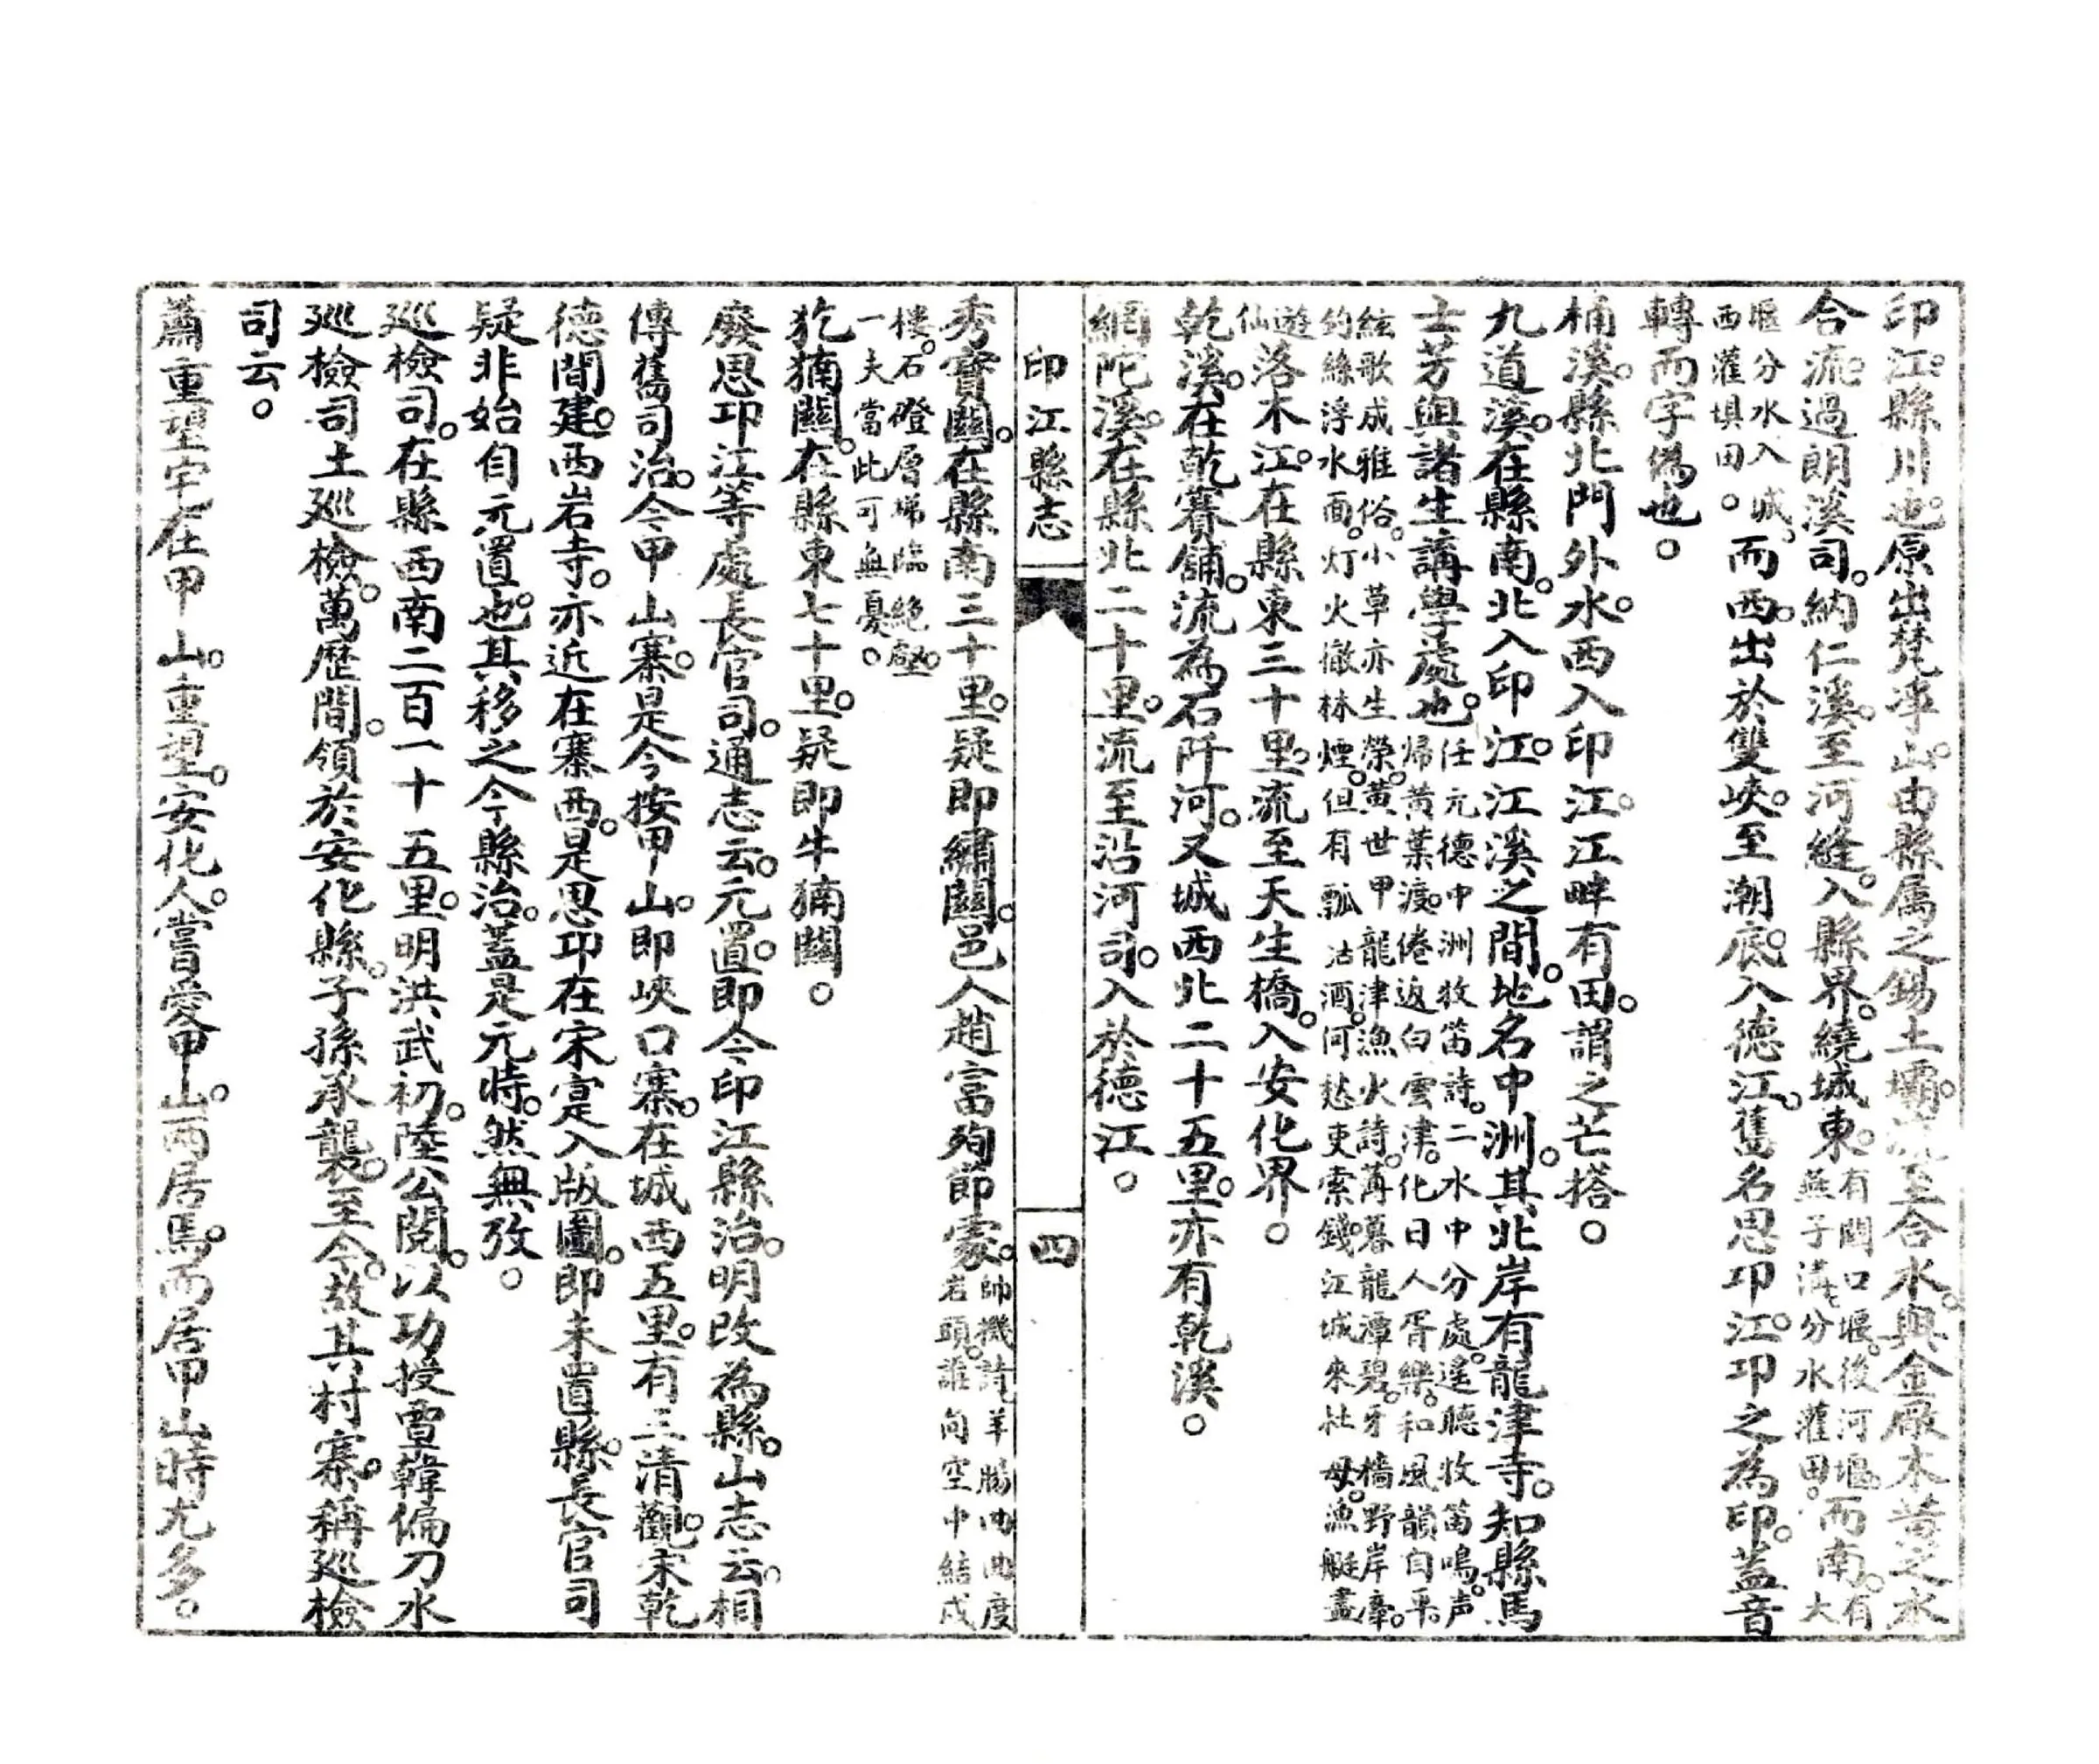 印江。縣川也。原出梵淨山。由縣属之錫土壩。流至合水。與金厰木黃之水
合流。過朗溪司。納仁溪。至河縫。入縣界。繞城東。有閘口堰。後河堰。而南。有大
燕子溝。分水灌田。
堰分水入城。西灌埧田。而西。出於雙峽。至潮底。入德江。舊名思卭江。卭之為印。蓋音
轉而字偽也。
桶溪。縣北門外水。西入印江。江畔有田。謂之芒搭。
九道溪。在縣南。北入印江。江溪之間。地名中洲。其北岸有龍津寺。知縣馬
士芳與諸生講學處也。任元德中洲牧笛詩。二水中分處。遙聽牧笛鳴。声
帰黃葉渡。倦返白雲津。化日人胥樂。和風韻自平。
絃歌成雅俗。小草亦生榮。黃世甲龍津漁火詩。薄暮龍潭碧。牙檣野岸牽。
釣絲浮水面。灯火撤林煙。但有瓢沽酒。何愁吏索錢。江城來杜母。漁艇盡
遊仙
落木江。在縣東三十里。流至天生橋。入安化界。
乾溪。在乾寨舖。流為石阡河。又城西北二十五里。亦有乾溪。
網陀溪。在縣北二十里。流至沿河司。入於德江。
印江縣志
四
秀寳關。在縣南三十里。疑即繡關。邑人趙富殉節處。帥機詩。羊腸曲曲度
岩頭。誰向空中結戍
樓。石磴層梯臨絕壑。
一夫當此可無憂。
犵㺚關。在縣東七十里。疑即牛㺚關。
廢思卭江等處長官司。通志云。元置。即今印江縣治。明改為縣。山志云。相
傳舊司治。今甲山寨。是今按甲山。即峽口寨。在城西五里。有三清觀。宋乾
德間建。西岩寺。亦近在寨西。是思卭在宋寔入版圖。即未置縣。長官司
疑非始自元置也。其移之今縣治。蓋是元時。然無攷。
巡檢司。在縣西南二百一十五里。明洪武初。陸公閱。以功授覃韓偏刀水
巡檢司土巡檢。萬歴間。領於安化縣。子孫承襲。至今。故其村寨。稱巡檢
司云。
蕭重望宅。在甲山。重望。安化人。嘗愛甲山。而居焉。而居甲山時尤多。